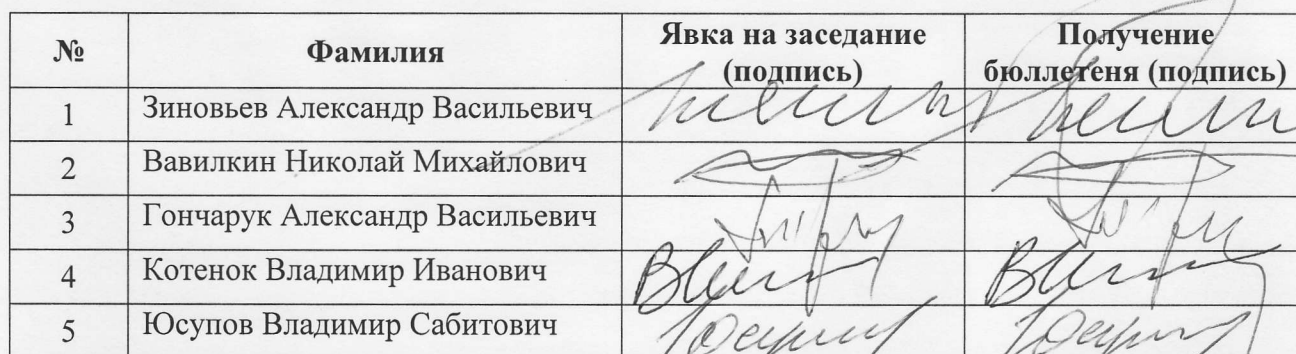 № Фамилия Явка на заседание (подпись) Получение бюллетеня (подпись)
1 Зиновьев Александр Васильевич
2 Вавилкин Николай Михайлович
3 Гончарук Александр Васильевич
4 Котенок Владимир Иванович
5 Юсупов Владимир Сабитович